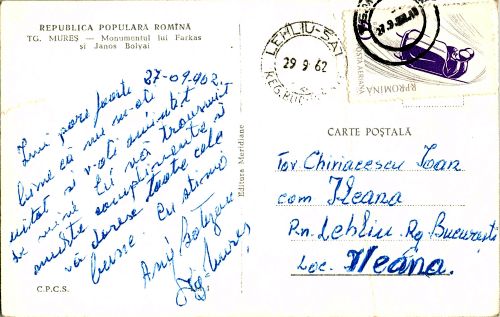 REPUBLICA POPULARA ROMÎNA
TG. MUREȘ — Monumentul lui Farkas
și Janos Bolyai
27-09.962
Îmi pare foarte
bine că nu m-ați
uitat și v-ați amintit
de mine. Eu vă transmit
multe complimente și
vă doresc toate cele
bune. Cu stimă
Any
Tg. Mureș
C.P.C.S.
Editura Meridiane
LEHLIU-SAT
29 9 62
REG. BUCUR
POSTA AERIANA
RPROMINA
CARTE POȘTALĂ
Tov Chiriacescu Ioan
com Ileana
Rn. Lehliu Rg București
Loc. Ileana.